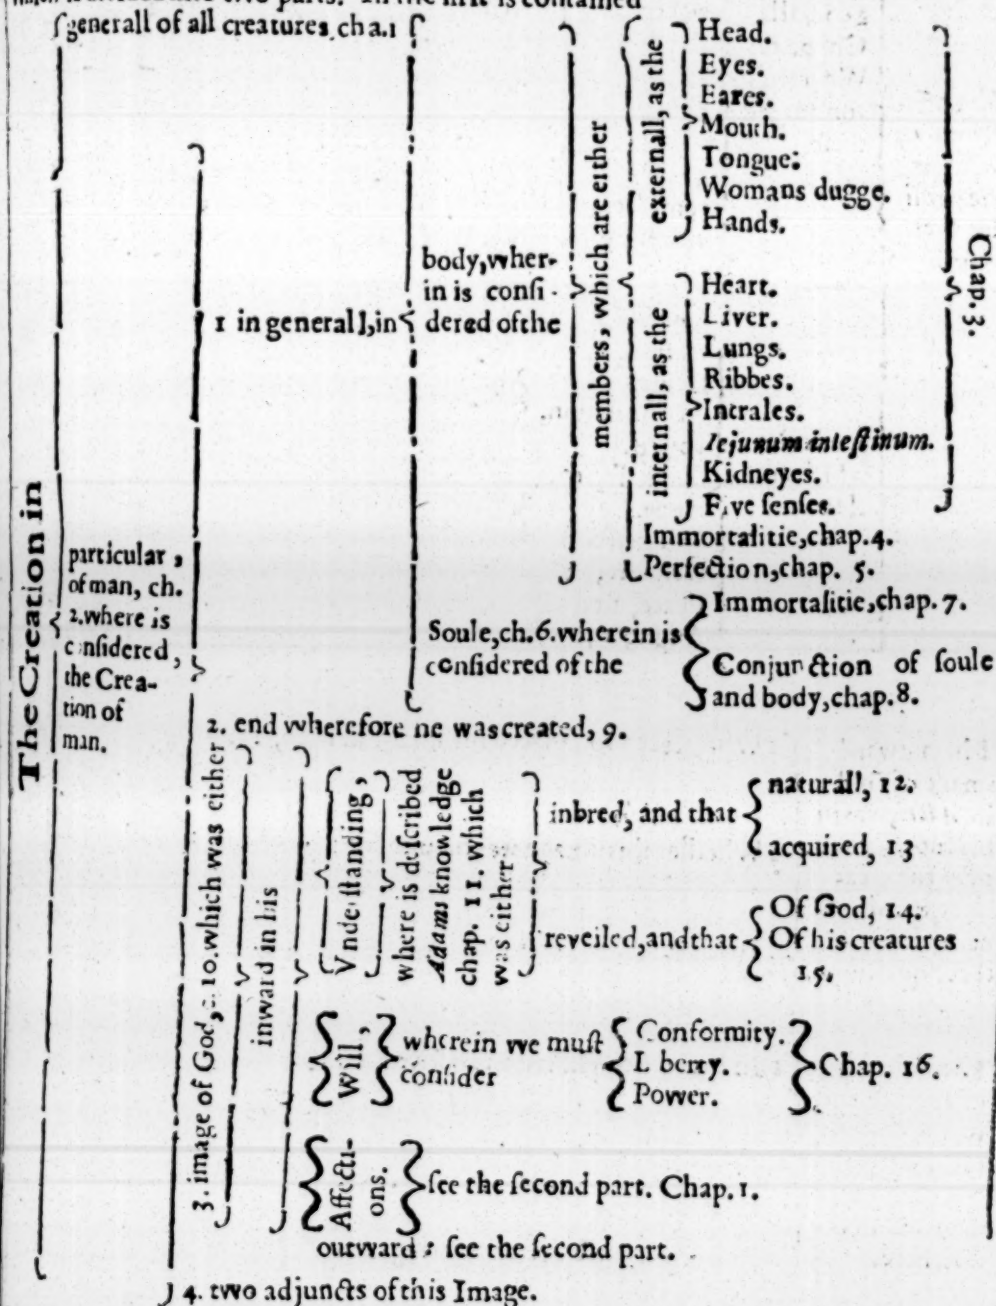 is contained
The Creation in
generall of all creatures, cha.1
particular,
of man, ch.
2.where is
considered,
the Crea-
tion of
man.
1 in generall, in
body, wher-
in is consi-
dered of the
members, which are either
externall, as the
Head.
Eyes.
Eares.
Mouth.
Tongue:
Womans dugge.
Hands.
internall, as the
Heart.
Liver.
Lungs.
Ribbes.
Intrales.
Iejunum inteſtinum.
Kidneyes.
Five ſenſes.
Chap. 3.
Immortalitie, chap. 4.
Perfection, chap. 5.
Soule, ch. 6. wherein is
conſidered of the
Immortalitie, chap. 7.
Conjunction of ſoule
and body, chap. 8.
2. end wherefore he was created, 9.
3. image of God, c. 10. which was either
inward in his
Vnderſtanding,
where is deſcribed
Adams knowledge
chap. 11. which
was either
inbred, and that
naturall, 12.
acquired, 13
reveiled, and that
Of God, 14.
Of his creatures
15.
Will,
wherein we muſt
conſider
Conformity.
Liberty.
Power.
Chap. 16.
Affecti-
ons.
ſee the ſecond part. Chap. 1.
outward : ſee the ſecond part.
4. two adjuncts of this Image.